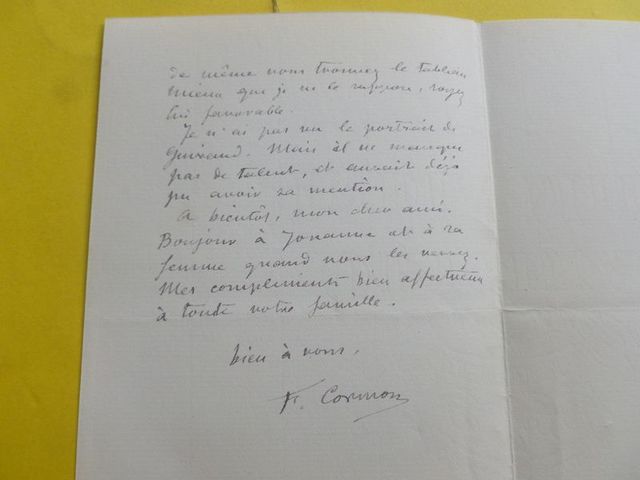 de même vous trouvez le tableau
mieux que je ne le suppose, soyez
lui favorable.
Je n'ai pas vu le portrait de
Guiraud. Mais il ne manque
pas de talent, et aurait déjà
pu avoir sa mention.
A bientôt, mon cher ami.
Bonjour à et à sa
femme quand vous les verrez.
Mes compliments bien affectueux
à toute votre famille.
bien à vous,
F. Cormon